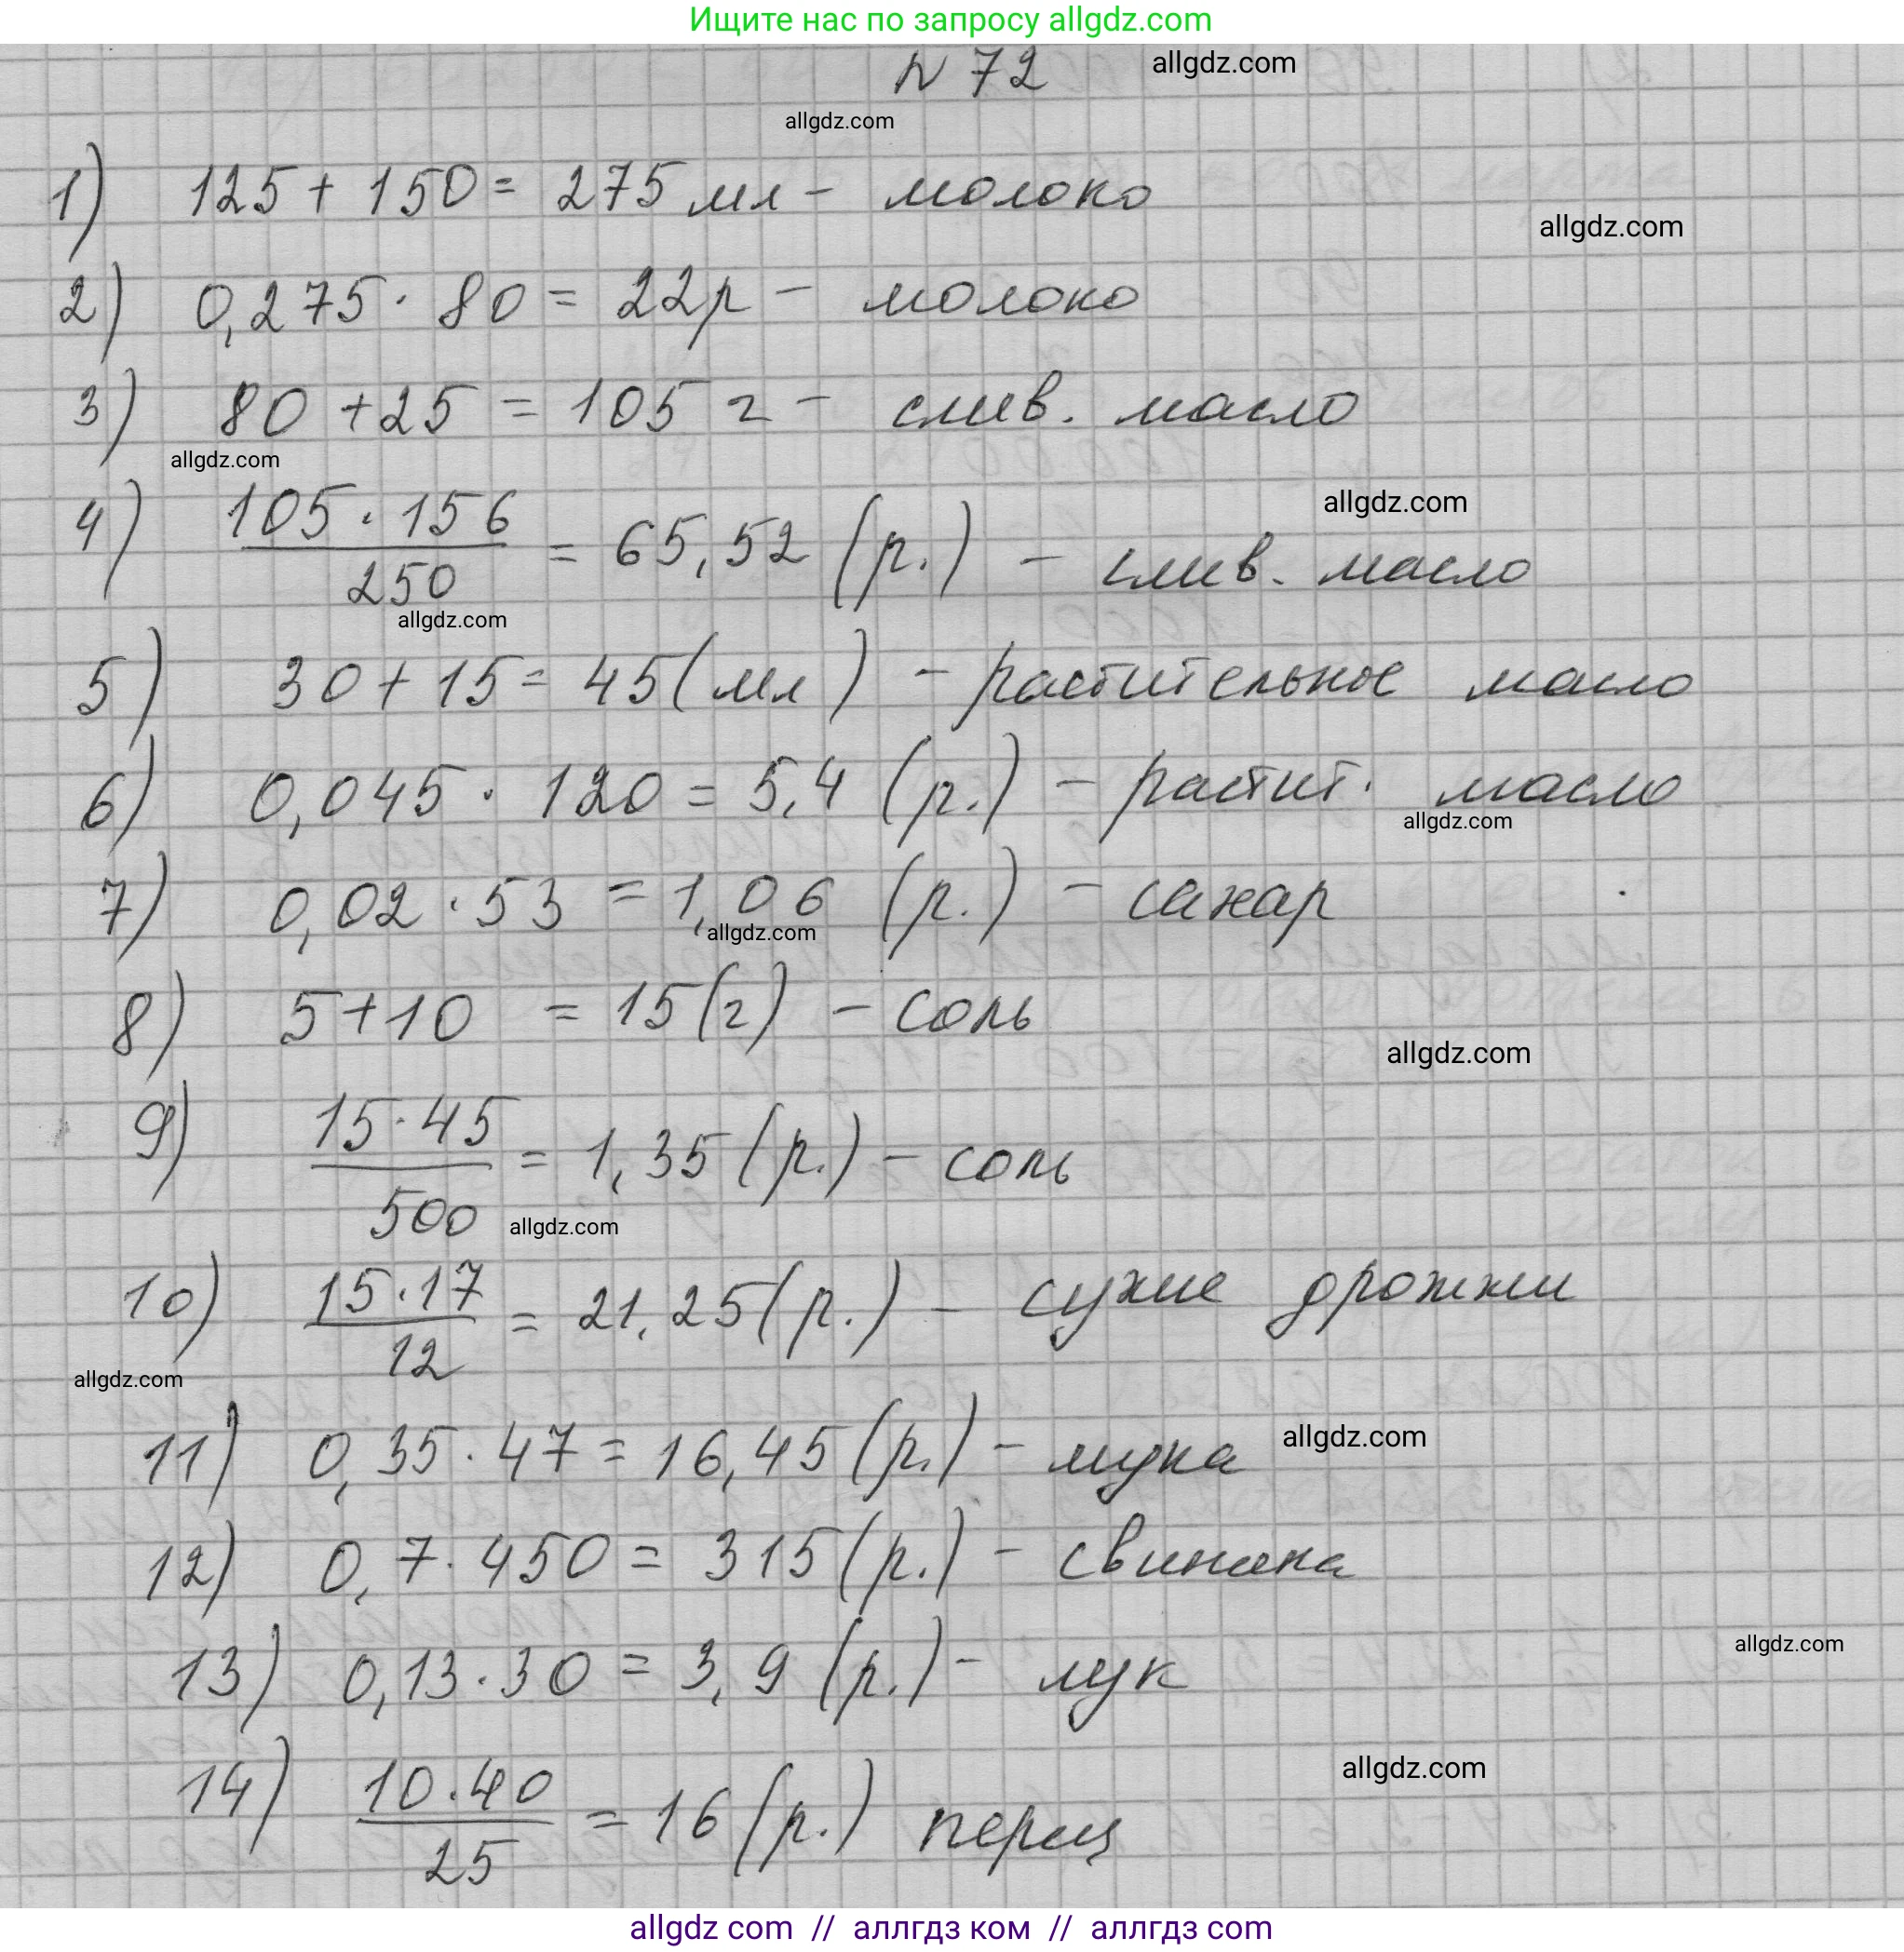 Ищите нас по запросу allgdz.com
N 72 allgdz.com
allgdz.com
1) 125 + 150 = 275 мл - молоко
allgdz.com
2) 0,275 · 80 = 22 р - молоко
3) 80 + 25 = 105 г - слив. масло
allgdz.com
4) 105 · 156 / 250 = 65,52 (р.) - слив. масло
allgdz.com
allgdz.com
5) 30 + 15 = 45 (мл) - растительное масло
6) 0,045 · 120 = 5,4 (р.) - растит. масло
allgdz.com
7) 0,02 · 53 = 1,06 (р.) - сахар
allgdz.com
8) 5 + 10 = 15 (г) - соль
allgdz.com
9) 15 · 45 / 500 = 1,35 (р.) - соль
allgdz.com
10) 15 · 17 / 12 = 21,25 (р.) - сухие дрожжи
allgdz.com
11) 0,35 · 47 = 16,45 (р.) - мука
allgdz.com
12) 0,7 · 450 = 315 (р.) - свинина
13) 0,13 · 30 = 3,9 (р.) - лук
allgdz.com
14) 10 · 40 / 25 = 16 (р.) перец
allgdz.com
allgdz com // аллгдз ком // аллгдз com